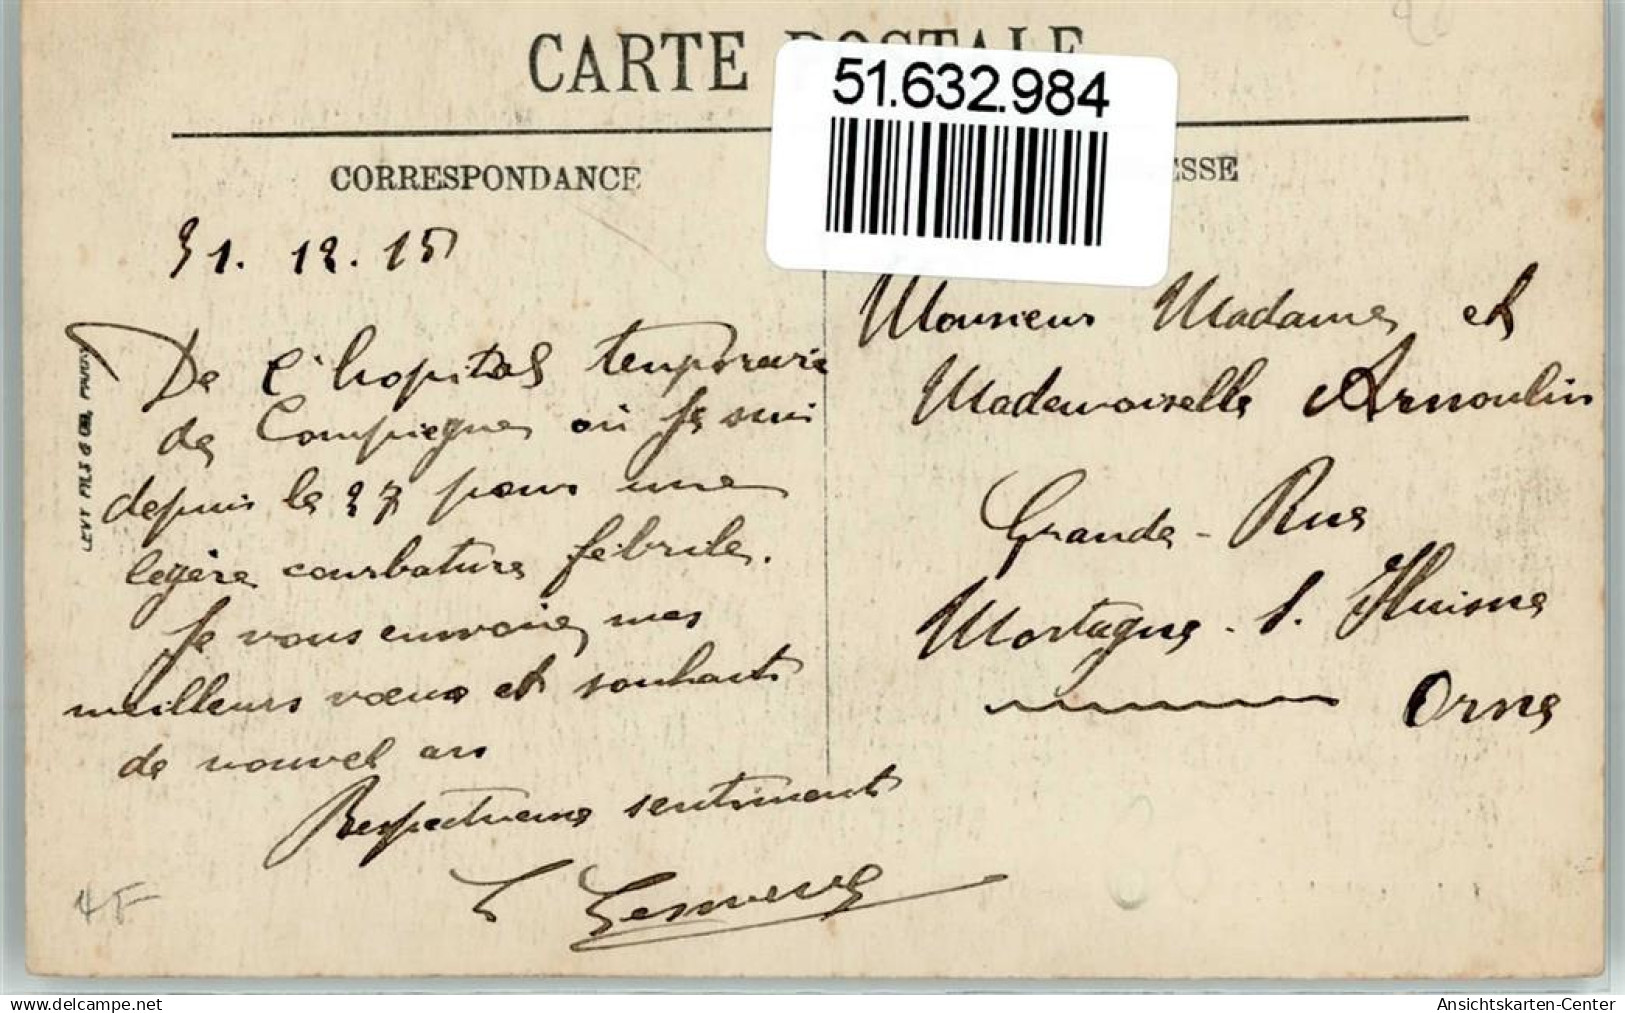 CARTE POSTALE
51.632.984
CORRESPONDANCE
ESSE
31.12.15
De l'hopital temporaire
de Compiegne où je suis
depuis le 27 pour une
legère courbature fébrile.
Je vous envoie mes
meilleurs vœux et souhaits
de nouvel an
Respectueux sentiments
LEVY FILS & CIE, PARIS
Monsieur Madame et
Mademoiselle Arnoulin
Grande-Rue
Mortagne. s. Huisne
Orne
delcampe.net
Ansichtskarten-Center